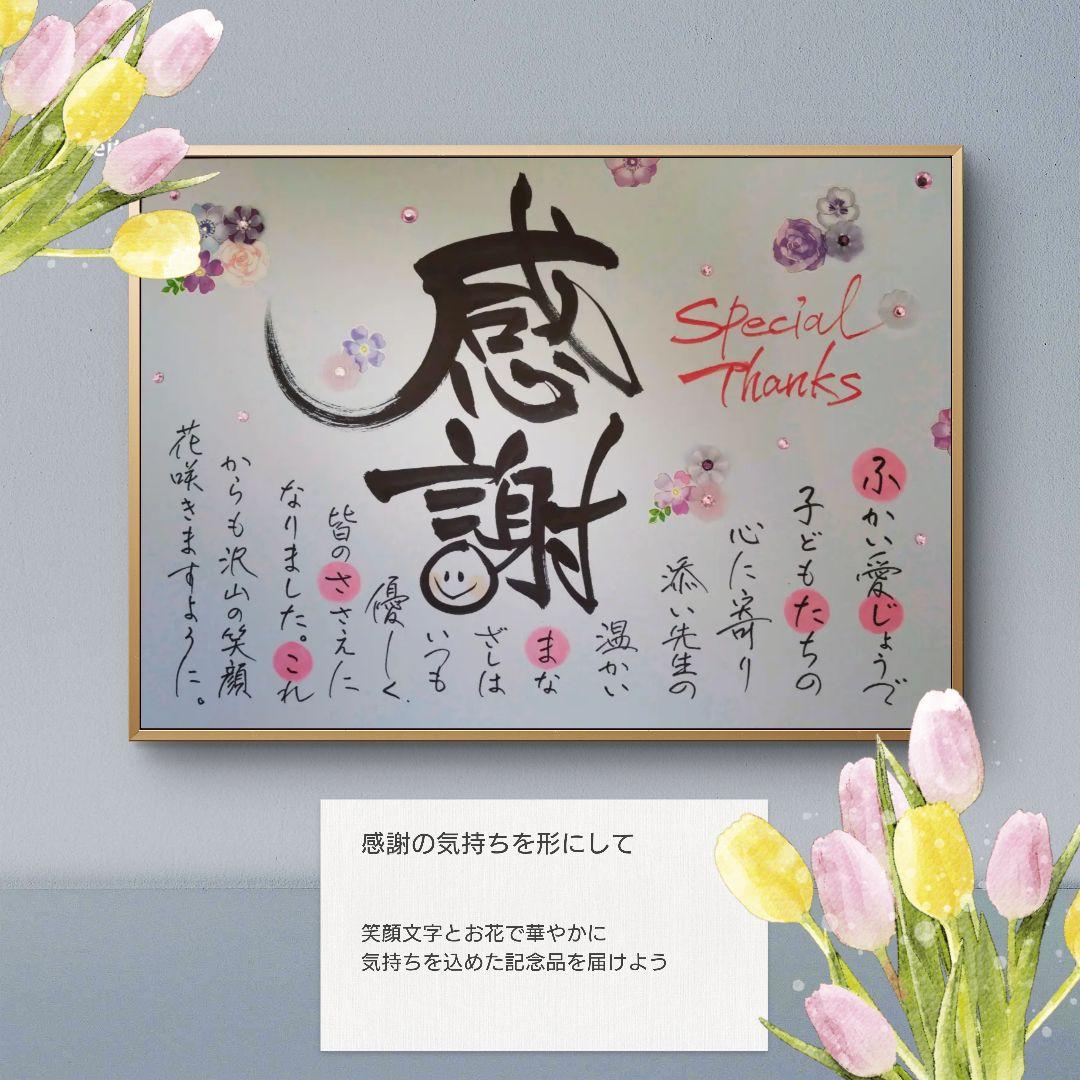 感謝
Special
Thanks
ふかい愛じょうで
子どもたちの
心に寄り
添い先生の
温かい
まな
ざしは
いつも
優しく、
皆のささえに
なりました。これ
からも沢山の笑顔
花咲きますように。
感謝の気持ちを形にして
笑顔文字とお花で華やかに
気持ちを込めた記念品を届けよう